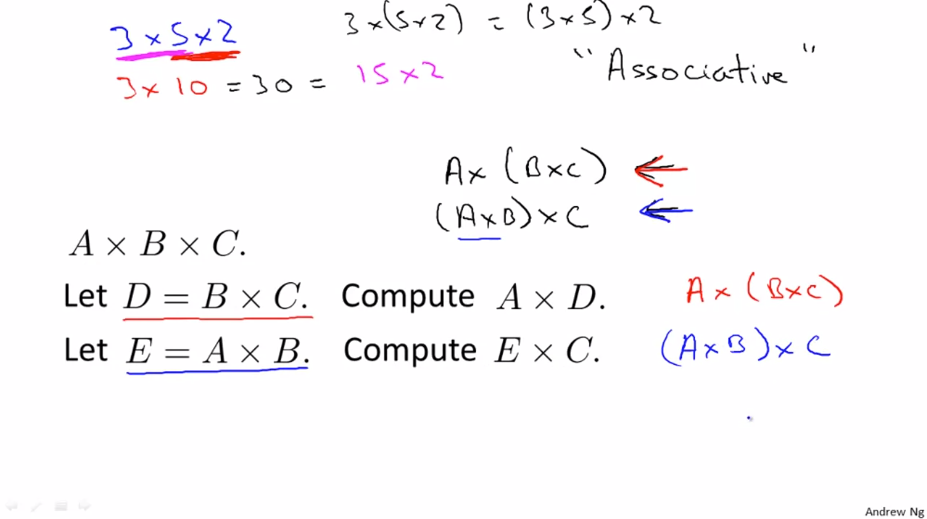 3 × 5 × 2
3 × (5 × 2) = (3 × 5) × 2
3 × 10 = 30 = 15 × 2
"Associative"
A × (B × C)
(A × B) × C
A × B × C.
Let D = B × C. Compute A × D. A × (B × C)
Let E = A × B. Compute E × C. (A × B) × C
Andrew Ng